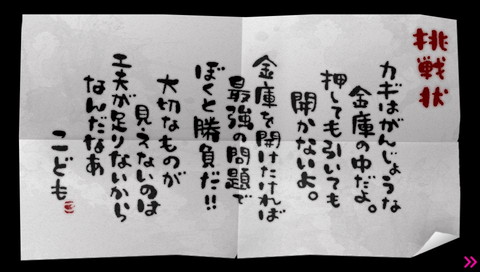 挑戦状
カギはがんじょうな
金庫の中だよ。
押しても引いても
開かないよ。
金庫を開けたければ
最強の問題で
ぼくと勝負だ!!
大切なものが
見えないのは
工夫が足りないから
なんだなあ
こども